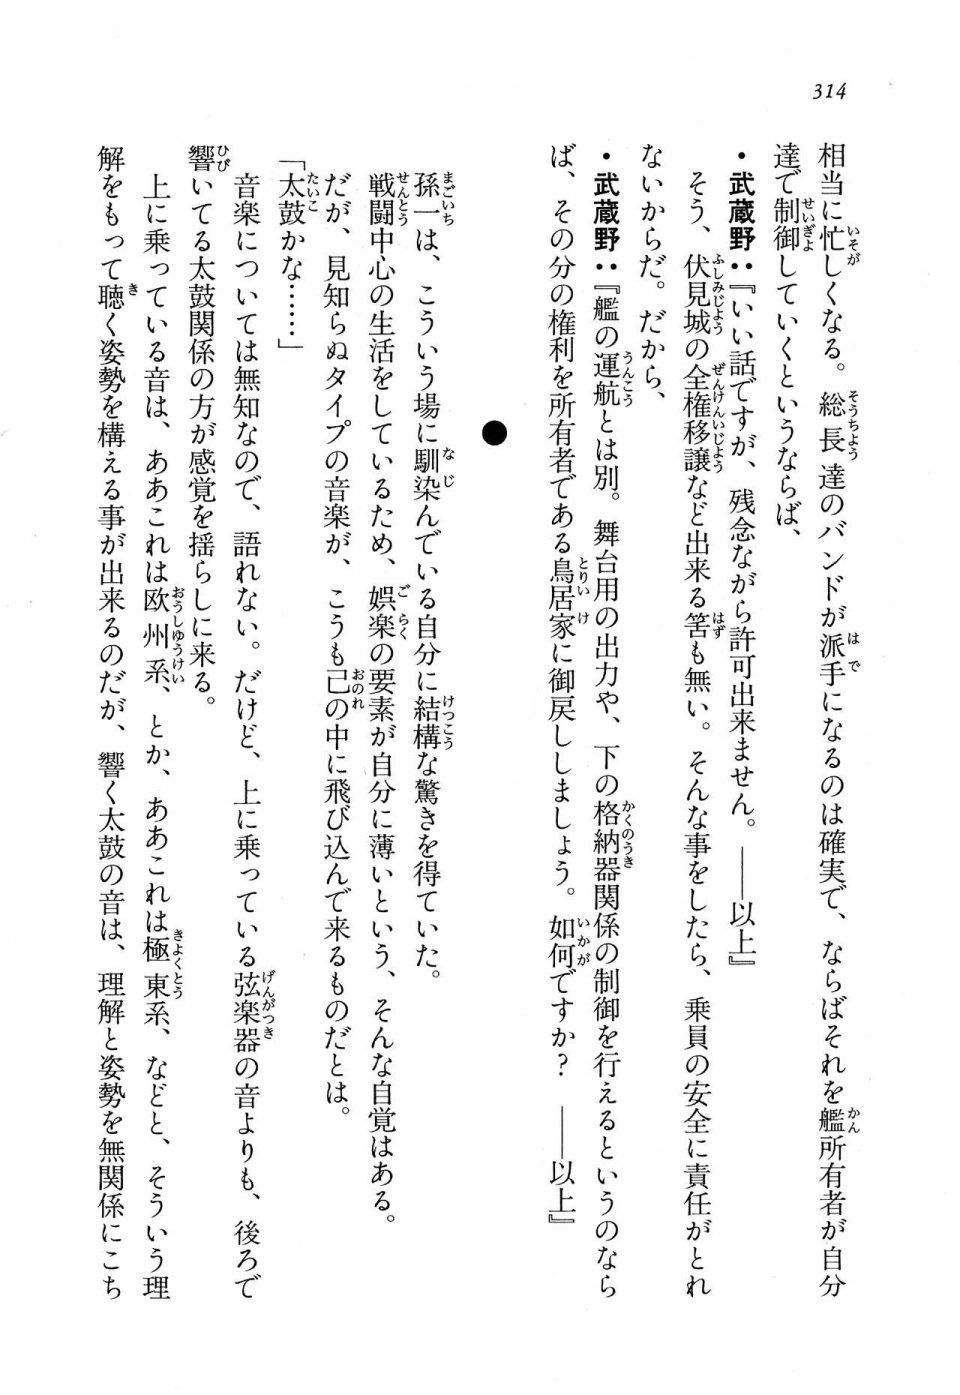 314
相当に忙しくなる。総長達のバンドが派手になるのは確実で、ならばそれを艦所有者が自分
達で制御していくというならば、
・武蔵野：『いい話ですが、残念ながら許可出来ません。――以上』
そう、伏見城の全権移譲など出来る筈も無い。そんな事をしたら、乗員の安全に責任がとれ
ないからだ。だから、
・武蔵野：『艦の運航とは別。舞台用の出力や、下の格納器関係の制御を行えるというのなら
ば、その分の権利を所有者である鳥居家に御戻ししましょう。如何ですか？　――以上』
●
孫一は、こういう場に馴染んでいる自分に結構な驚きを得ていた。
戦闘中心の生活をしているため、娯楽の要素が自分に薄いという、そんな自覚はある。
だが、見知らぬタイプの音楽が、こうも己の中に飛び込んで来るものだとは。
「太鼓かな……」
音楽については無知なので、語れない。だけど、上に乗っている弦楽器の音よりも、後ろで
響いてる太鼓関係の方が感覚を揺らしに来る。
上に乗っている音は、ああこれは欧州系、とか、ああこれは極東系、などと、そういう理
解をもって聴く姿勢を構える事が出来るのだが、響く太鼓の音は、理解と姿勢を無関係にこち